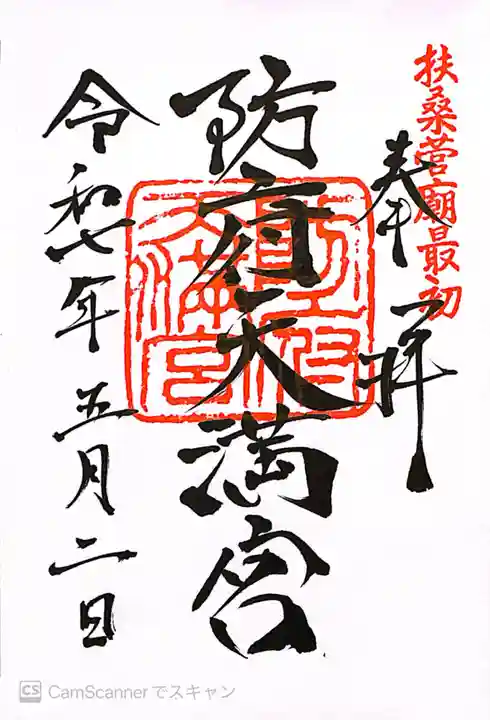 扶桑菅廟最初
奉拝
防府天満宮
令和七年五月二日
CS CamScanner でスキャン